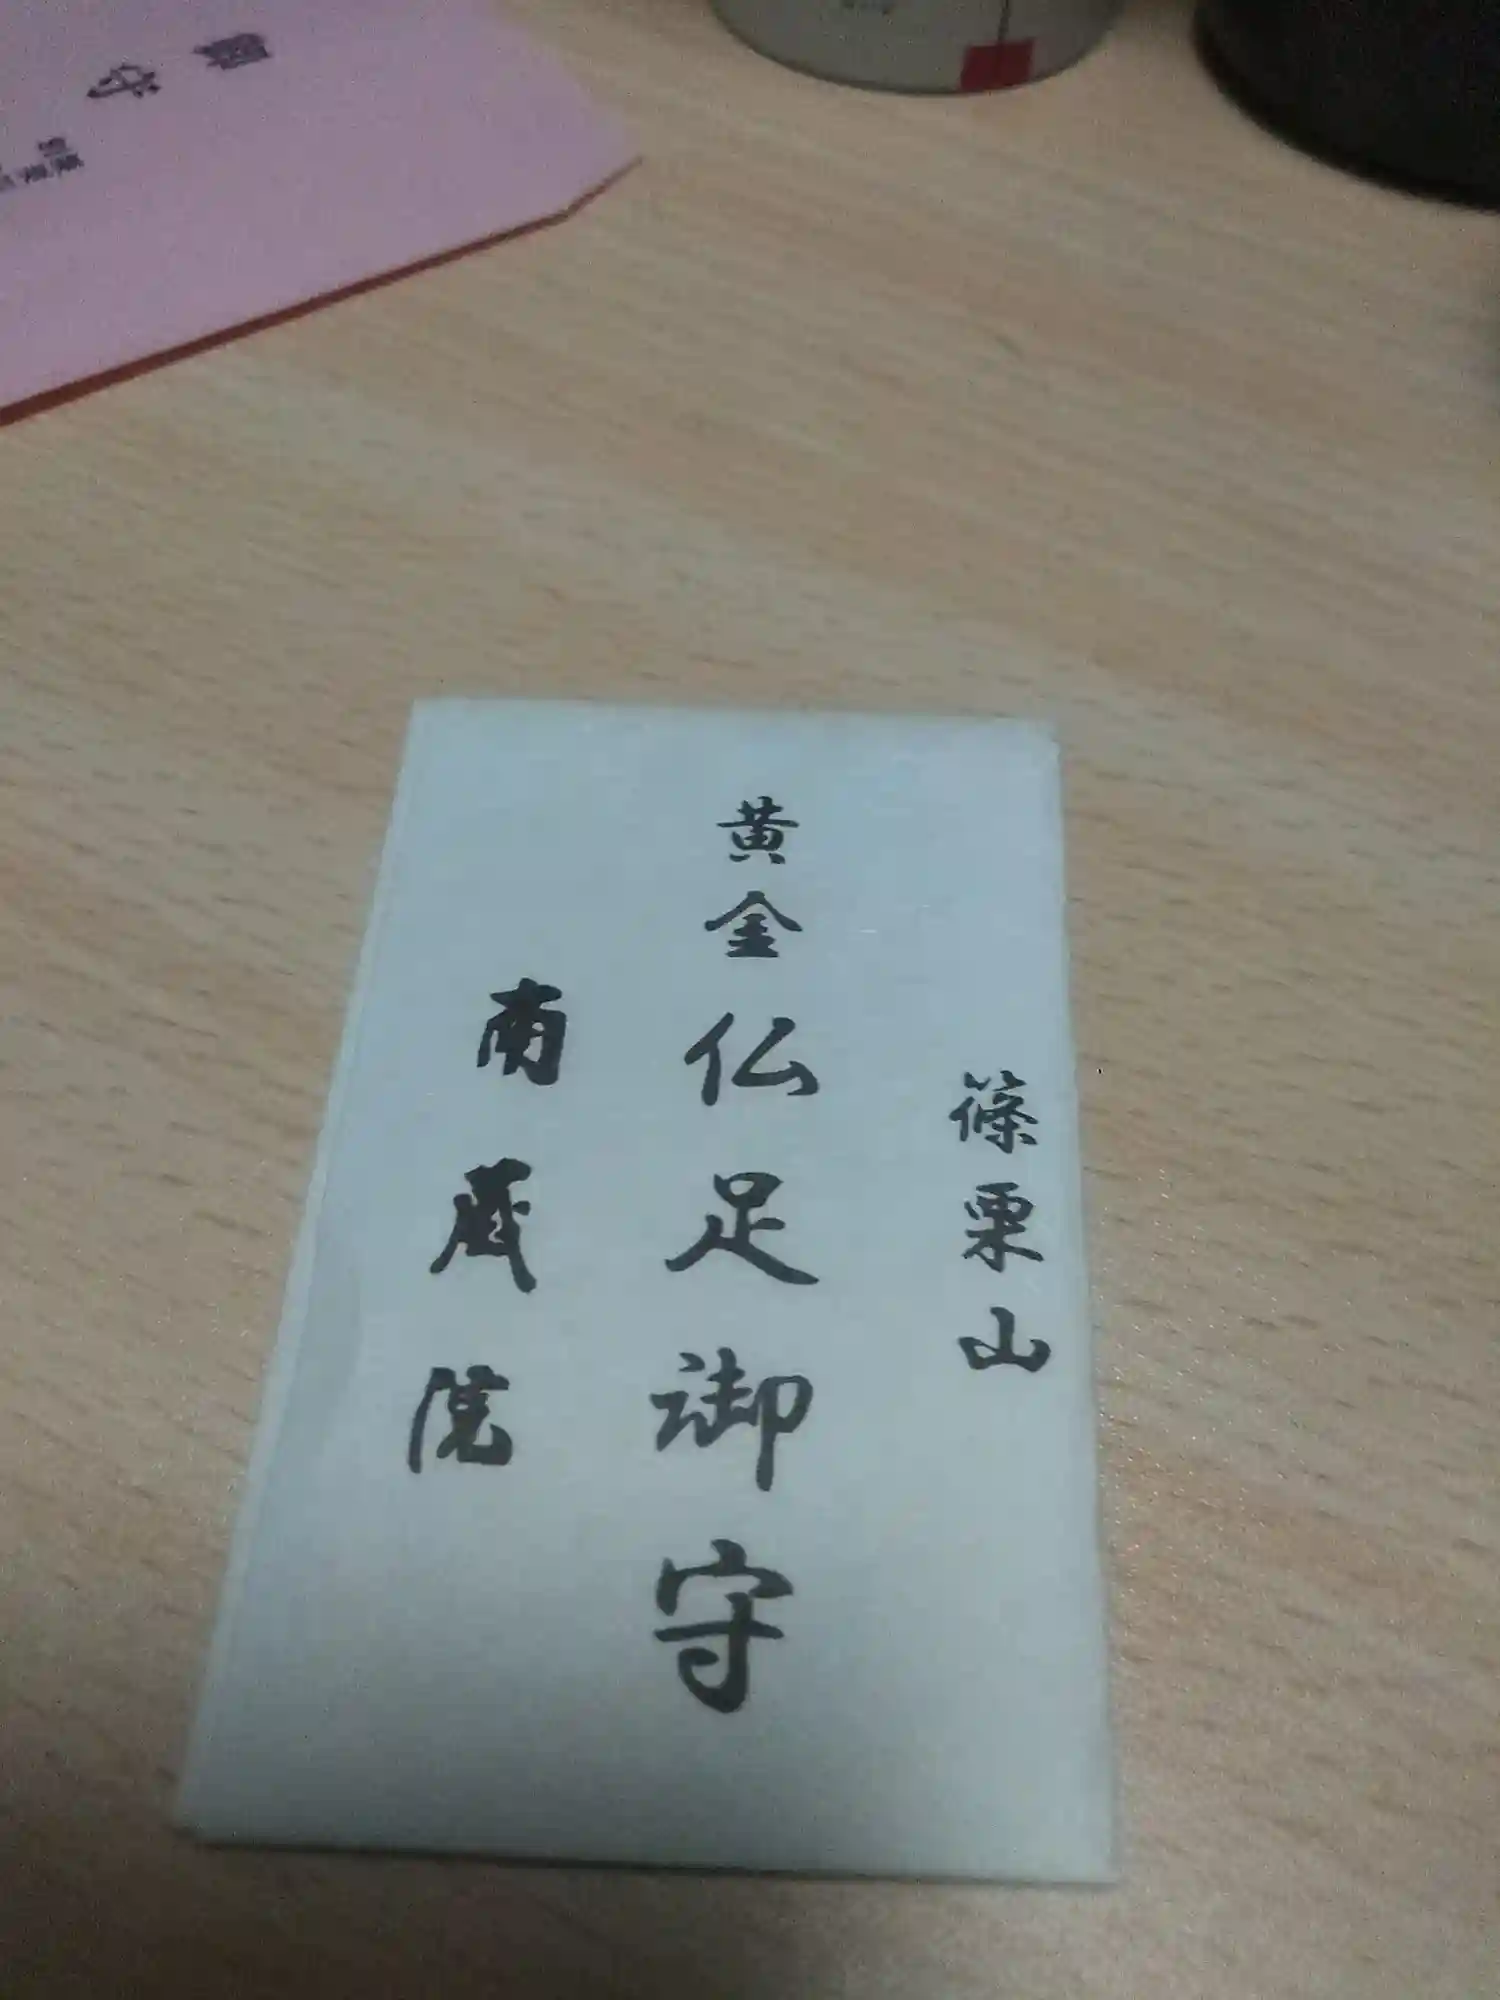 篠栗山
黄金仏足御守
南蔵院